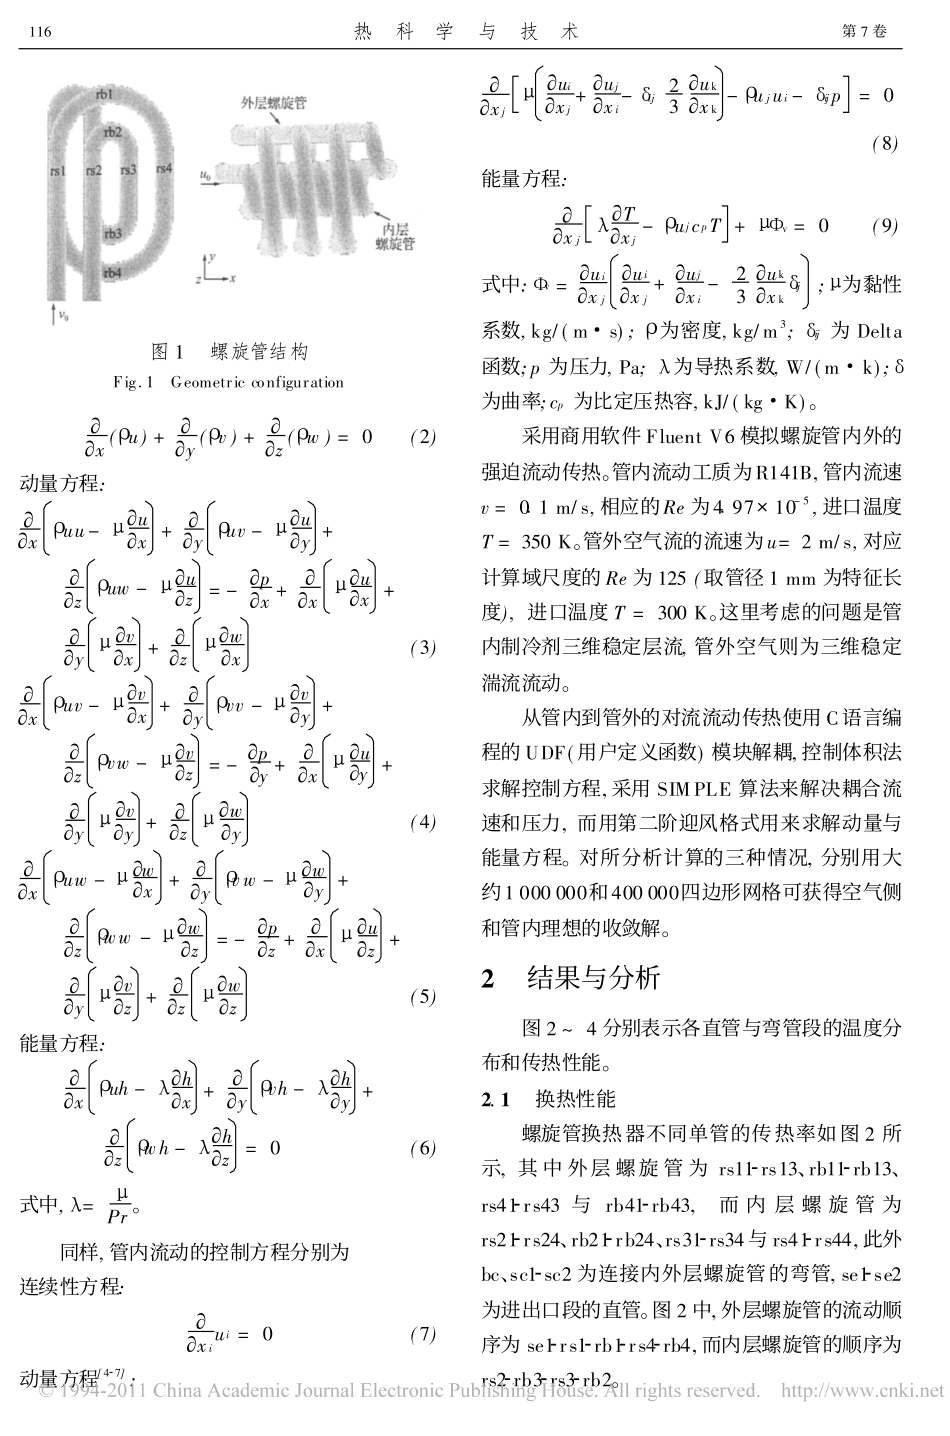 116
热 科 学 与 技 术
第 7 卷
rb1
rb2
rs1 rs2 rs3 rs4
rb3
rb4
v₀
外层螺旋管
u₀
内层
螺旋管
y
z x
图 1 螺旋管结构
Fig. 1 Geometric configuration
∂/∂x(ρu) + ∂/∂y(ρv) + ∂/∂z(ρw) = 0 (2)
动量方程:
∂/∂x(ρuu − μ∂u/∂x) + ∂/∂y(ρuv − μ∂u/∂y) +
∂/∂z(ρuw − μ∂u/∂z) = − ∂p/∂x + ∂/∂x(μ∂u/∂x) +
∂/∂y(μ∂v/∂x) + ∂/∂z(μ∂w/∂x) (3)
∂/∂x(ρuv − μ∂v/∂x) + ∂/∂y(ρvv − μ∂v/∂y) +
∂/∂z(ρvw − μ∂v/∂z) = − ∂p/∂y + ∂/∂x(μ∂u/∂y) +
∂/∂y(μ∂v/∂y) + ∂/∂z(μ∂w/∂y) (4)
∂/∂x(ρuw − μ∂w/∂x) + ∂/∂y(ρvw − μ∂w/∂y) +
∂/∂z(ρww − μ∂w/∂z) = − ∂p/∂z + ∂/∂x(μ∂u/∂z) +
∂/∂y(μ∂v/∂z) + ∂/∂z(μ∂w/∂z) (5)
能量方程:
∂/∂x(ρuh − λ∂h/∂x) + ∂/∂y(ρvh − λ∂h/∂y) +
∂/∂z(ρwh − λ∂h/∂z) = 0 (6)
式中, λ= μ/Pr。
同样, 管内流动的控制方程分别为
连续性方程:
∂/∂xᵢ uᵢ = 0 (7)
动量方程[4-7]:
∂/∂xⱼ[μ(∂uᵢ/∂xⱼ + ∂uⱼ/∂xᵢ − δᵢⱼ 2/3 ∂uₖ/∂xₖ) − ρuⱼuᵢ − δᵢⱼp] = 0
(8)
能量方程:
∂/∂xⱼ[λ∂T/∂xⱼ − ρuⱼc_pT] + μΦᵥ = 0 (9)
式中: Φᵥ = ∂uᵢ/∂xⱼ(∂uᵢ/∂xⱼ + ∂uⱼ/∂xᵢ − 2/3 ∂uₖ/∂xₖ δᵢⱼ); μ为黏性
系数, kg/(m·s); ρ为密度, kg/m³; δᵢⱼ 为 Delta
函数; p 为压力, Pa; λ为导热系数, W/(m·k); δ
为曲率; c_p 为比定压热容, kJ/(kg·K)。
采用商用软件 Fluent V6 模拟螺旋管内外的
强迫流动传热。管内流动工质为R141B, 管内流速
v = 0.1 m/s, 相应的 Re 为4.97×10⁻⁵, 进口温度
T = 350 K。管外空气流的流速为u= 2 m/s, 对应
计算域尺度的 Re 为 125 (取管径 1 mm 为特征长
度), 进口温度 T = 300 K。这里考虑的问题是管
内制冷剂三维稳定层流, 管外空气则为三维稳定
湍流流动。
从管内到管外的对流流动传热使用 C 语言编
程的 UDF(用户定义函数) 模块解耦, 控制体积法
求解控制方程, 采用 SIMPLE 算法来解决耦合流
速和压力, 而用第二阶迎风格式用来求解动量与
能量方程。对所分析计算的三种情况, 分别用大
约1 000 000和400 000四边形网格可获得空气侧
和管内理想的收敛解。
2 结果与分析
图 2 ~ 4 分别表示各直管与弯管段的温度分
布和传热性能。
2.1 换热性能
螺旋管换热器不同单管的传热率如图 2 所
示, 其中外层螺旋管为 rs11-rs13、rb11-rb13、
rs41-rs43 与 rb41-rb43, 而内层螺旋管为
rs21-rs24、rb21-rb24、rs31-rs34 与 rs41-rs44, 此外
bc、sc1-sc2 为连接内外层螺旋管的弯管, se1-se2
为进出口段的直管。图 2 中, 外层螺旋管的流动顺
序为 se1-rs1-rb1-rs4-rb4, 而内层螺旋管的顺序为
rs2-rb3-rs3-rb2。
© 1994-2011 China Academic Journal Electronic Publishing House. All rights reserved. http://www.cnki.net